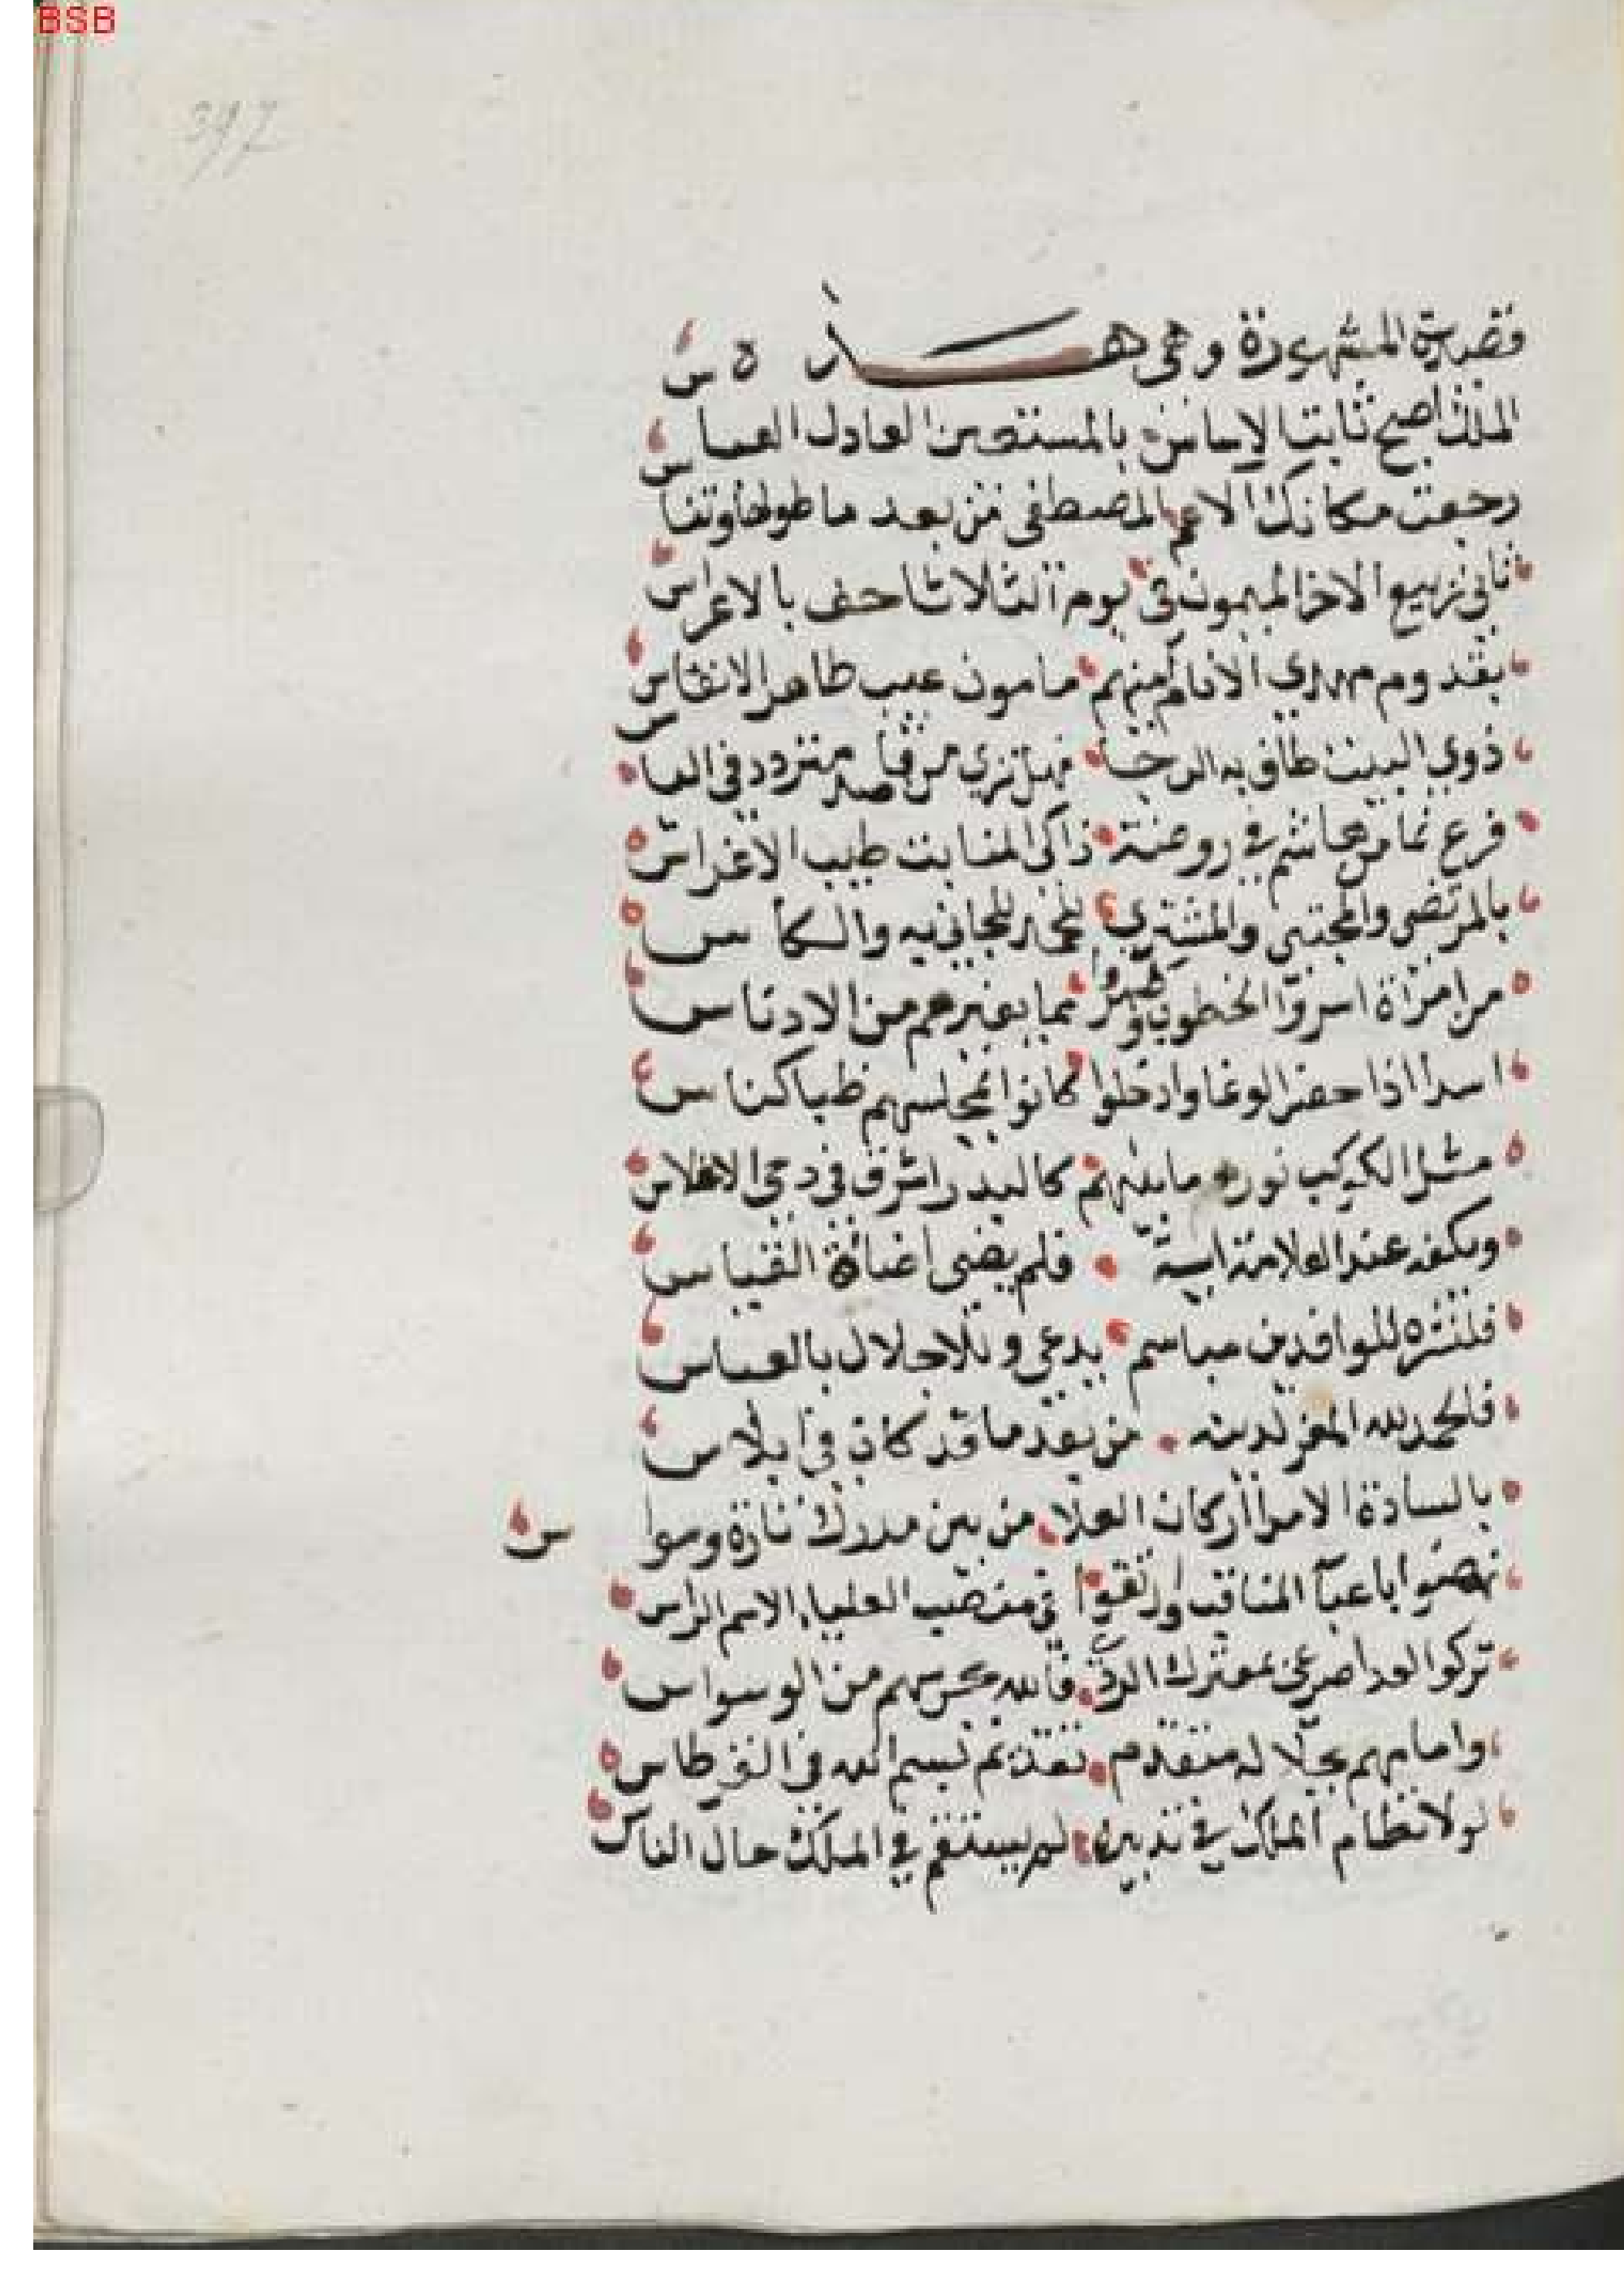 BSB
397
قصيدة المشهورة وهى هذه
الملك اصبح ثابت الاساس بالمستعين العادل العباس
رجعت مكانك الاعم المصطفى من بعد ما طولها وتناس
ثانى ربيع الاخر الميمون فى يوم الثلاثا حف بالاعراس
بقدوم مهدي الانام امينهم مامون عيب طاهر الانفاس
ذوي البيت طاف به الرجا فهل تري من قاصد متردد فى الباس
فرع نما من هاشم في روضة زاكى المنابت طيب الاغراس
بالمرتضى والمجتبى والمشتري للحمد للجانيه والكاس
من امراة اسروا الخطوب وطهروا مما يغيرهم من الادناس
اسدا اذا حضر الوغا واد خلوا كانوا بمجلسهم ظبا كناس
مثل الكوكب نوره ما بينهم كالبدر اشرق فى دجى الاغلاس
وبكفه عند العلامة اية فلم يضى اضاة القياس
فلنشره للوافدين مباسم يدعى وللاجلال بالعباس
فالحمد لله المعز لدينه من بعد ما قد كان فى ابلاس
بالسادة الامرا اركان العلا من بين مدرك تارة ومواس
نهضوا باعبآ المناقب وارتقوا فى منصب العلياء الاسم الراس
تركوا العدا صرعى بمعترك الردى فالله يحرسهم من الوسواس
وامامهم بجلاله متقدم تقديم بسم الله فى القرطاس
لولا نظام الملك في تدبيره لم يستقم في الملك حال الناس